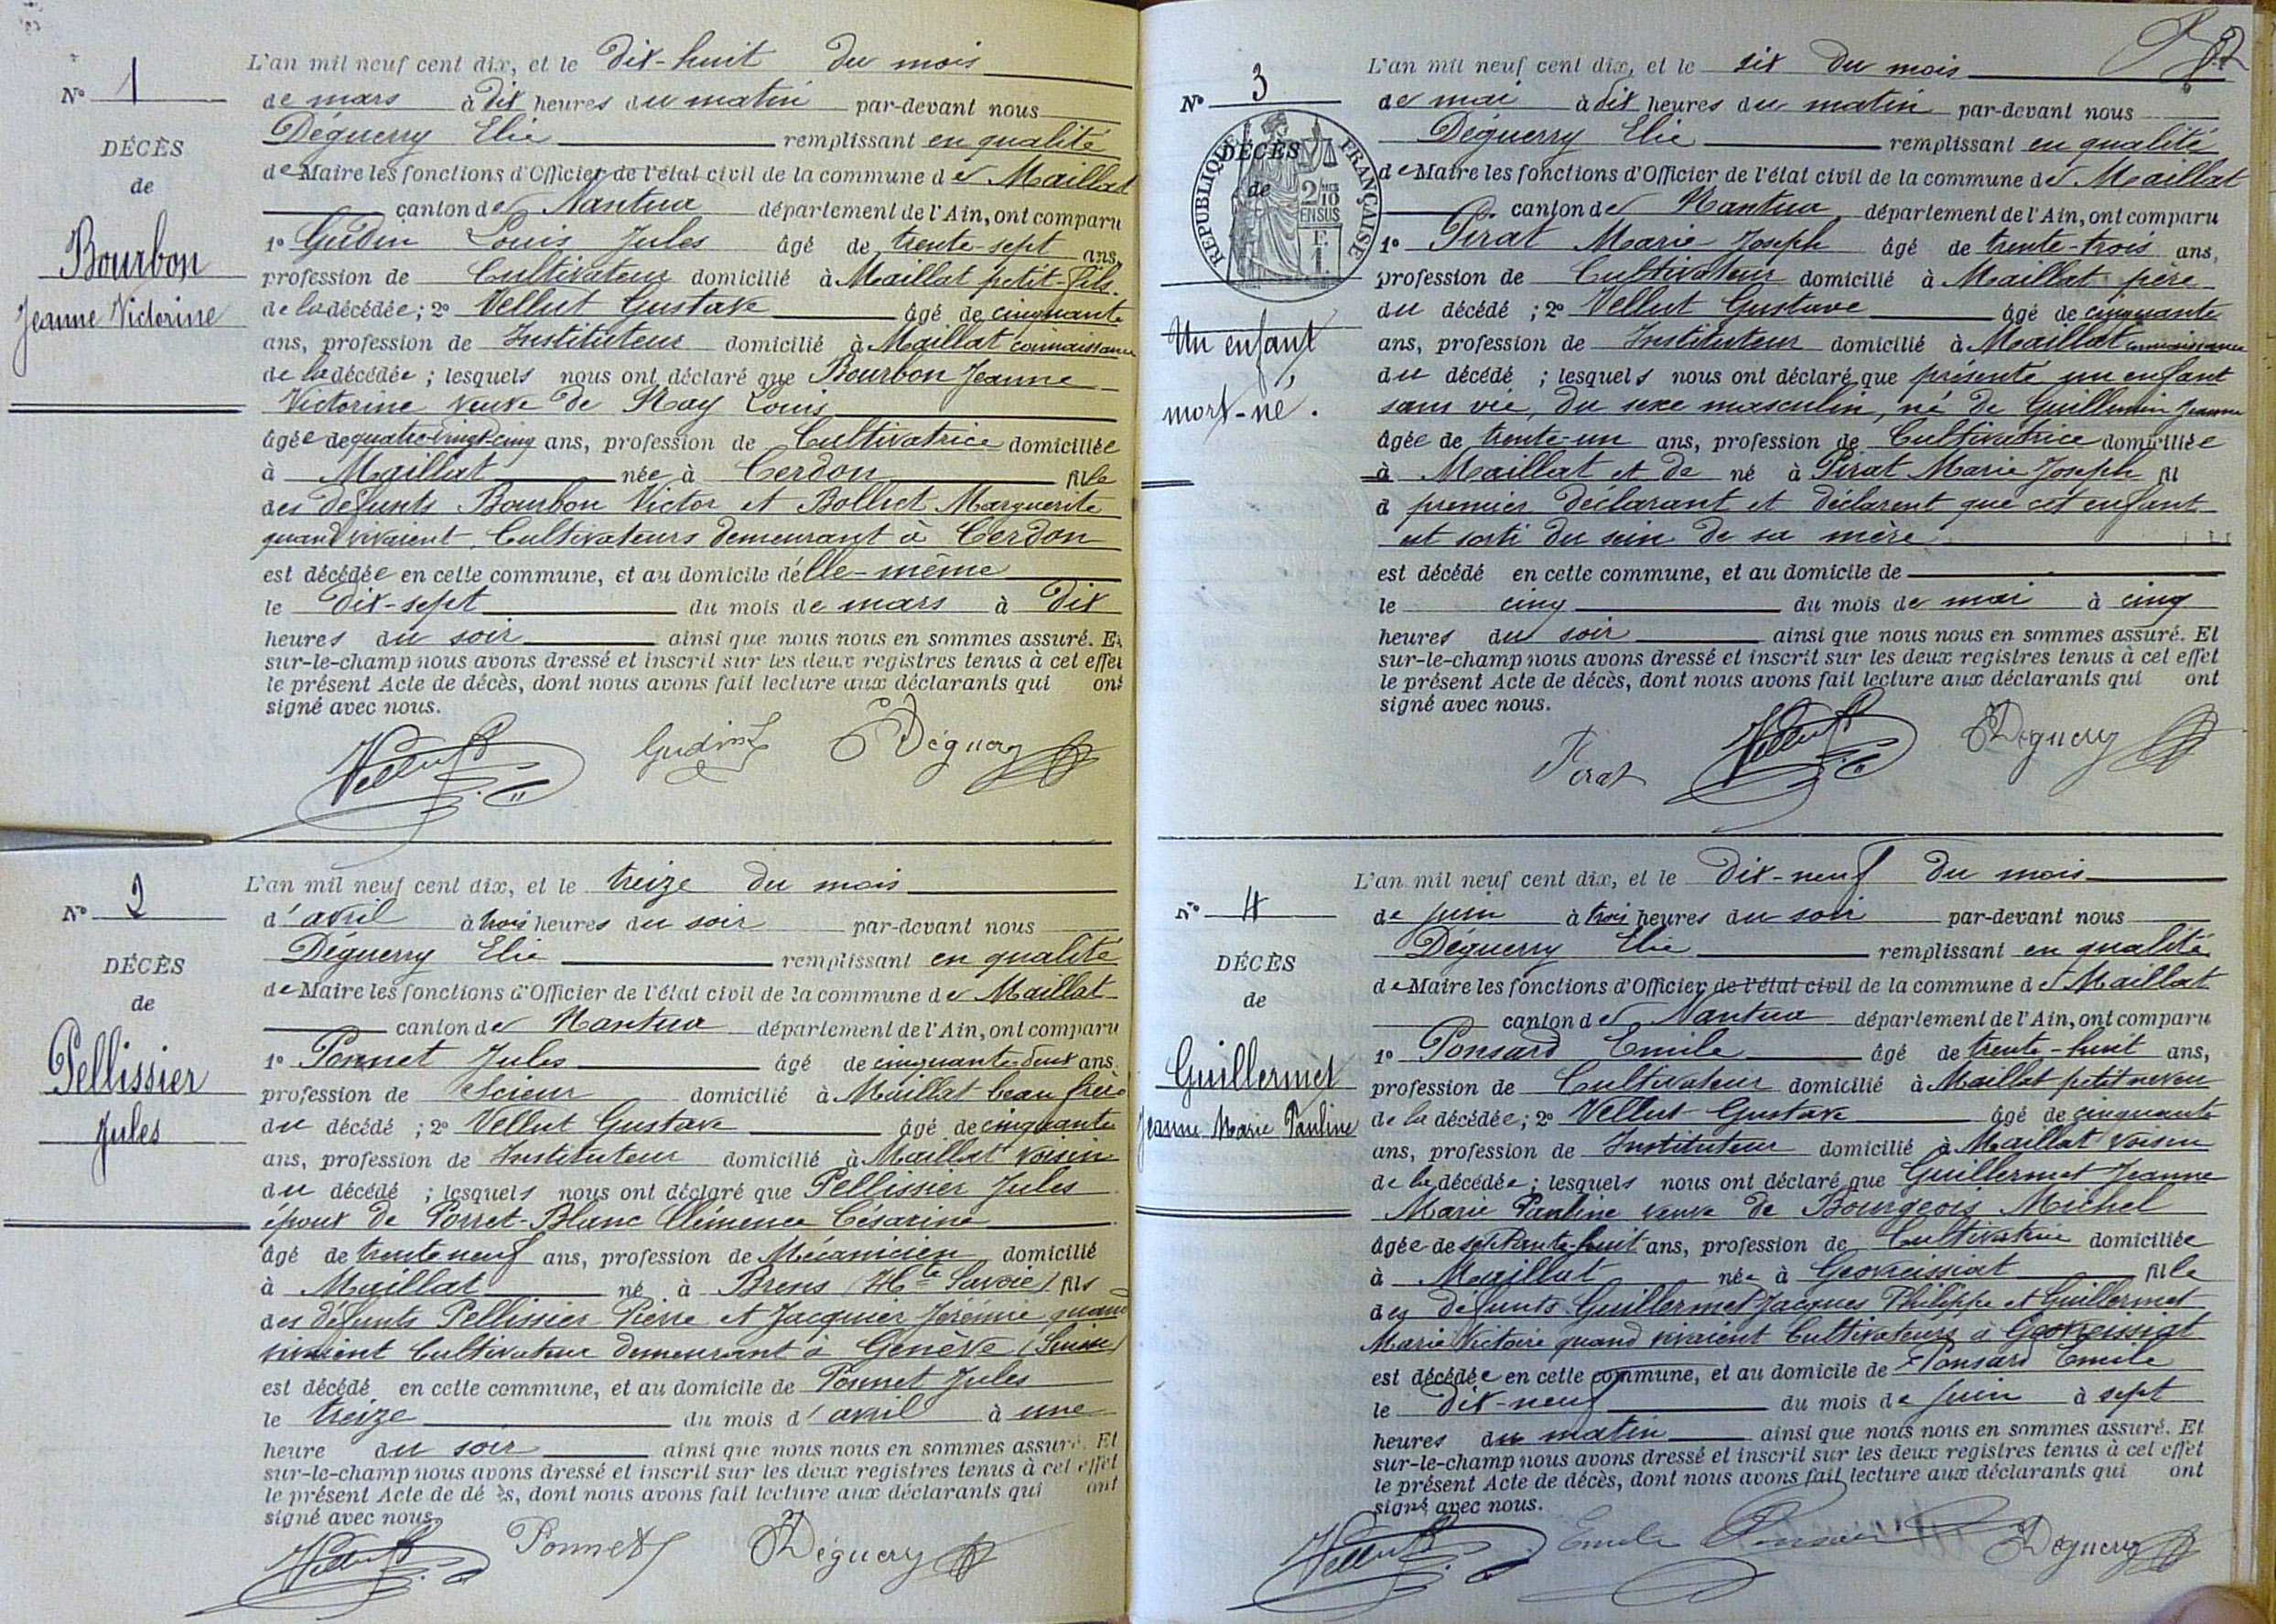 N° 1
DÉCÈS
de
Bourbon
Jeanne Victorine
L'an mil neuf cent dix, et le dix-huit du mois
de mars à dix heures du matin par-devant nous
Déguerry Elie remplissant en qualité
de Maire les fonctions d'Officier de l'état civil de la commune de Maillat
canton de Nantua département de l'Ain, ont comparu
1° Gudin Louis Jules âgé de trente-sept ans,
profession de Cultivateur domicilié à Maillat petit-fils
de la décédée ; 2° Vellut Gustave âgé de cinquante
ans, profession de Instituteur domicilié à Maillat connaissance
de la décédée ; lesquels nous ont déclaré que Bourbon Jeanne
Victorine veuve de Ray Louis
âgée de quatre-vingt-cinq ans, profession de Cultivatrice domiciliée
à Maillat née à Cerdon fille
des défunts Bourbon Victor et Bolliet Marguerite
quand vivaient Cultivateurs demeurant à Cerdon
est décédée en cette commune, et au domicile d'elle-même
le dix-sept du mois de mars à dix
heures du soir ainsi que nous nous en sommes assuré. Et
sur-le-champ nous avons dressé et inscrit sur les deux registres tenus à cet effet
le présent Acte de décès, dont nous avons fait lecture aux déclarants qui ont
signé avec nous.
Vellut Gudin L Déguerry
N° 2
DÉCÈS
de
Pellissier
Jules
L'an mil neuf cent dix, et le treize du mois
d'avril à trois heures du soir par-devant nous
Déguerry Elie remplissant en qualité
de Maire les fonctions d'Officier de l'état civil de la commune de Maillat
canton de Nantua département de l'Ain, ont comparu
1° Ponnet Jules âgé de cinquante-deux ans
profession de Scieur domicilié à Maillat beau frère
du décédé ; 2° Vellut Gustave âgé de cinquante
ans, profession de Instituteur domicilié à Maillat voisin
du décédé ; lesquels nous ont déclaré que Pellissier Jules
époux de Porret-Blanc Clémence Césarine
âgé de trente neuf ans, profession de Mécanicien domicilié
à Maillat né à Brens (Hte Savoie) fils
des défunts Pellissier Pierre et Jacquier Jérénne quand
vivaient Cultivateur demeurant à Genève (Suisse)
est décédé en cette commune, et au domicile de Ponnet Jules
le treize du mois d'avril à une
heure du soir ainsi que nous nous en sommes assuré. Et
sur-le-champ nous avons dressé et inscrit sur les deux registres tenus à cet effet
le présent Acte de décès, dont nous avons fait lecture aux déclarants qui ont
signé avec nous.
Vellut Ponnet J Déguerry
N° 3
DÉCÈS
de
RÉPUBLIQUE FRANÇAISE
2/10
EN SUS
F.
1.
Un enfant
mort-né.
L'an mil neuf cent dix, et le six du mois
de mai à dix heures du matin par-devant nous
Déguerry Elie remplissant en qualité
de Maire les fonctions d'Officier de l'état civil de la commune de Maillat
canton de Nantua département de l'Ain, ont comparu
1° Pirat Marie Joseph âgé de trente-trois ans,
profession de Cultivateur domicilié à Maillat père
du décédé ; 2° Vellut Gustave âgé de cinquante
ans, profession de Instituteur domicilié à Maillat connaissance
du décédé ; lesquels nous ont déclaré que présenté un enfant
sans vie, du sexe masculin, né de Guillemin Jeanne
âgée de trente-un ans, profession de Cultivatrice domiciliée
à Maillat et de né à Pirat Marie Joseph fil
d premier déclarant et déclarent que cet enfant
est sorti du sein de sa mère
est décédé en cette commune, et au domicile de
le cinq du mois de mai à cinq
heures du soir ainsi que nous nous en sommes assuré. Et
sur-le-champ nous avons dressé et inscrit sur les deux registres tenus à cet effet
le présent Acte de décès, dont nous avons fait lecture aux déclarants qui ont
signé avec nous.
Pirat Vellut Déguerry
N° 4
DÉCÈS
de
Guillermet
Jeanne Marie Pauline
L'an mil neuf cent dix, et le dix-neuf du mois
de juin à trois heures du soir par-devant nous
Déguerry Elie remplissant en qualité
de Maire les fonctions d'Officier de l'état civil de la commune de Maillat
canton de Nantua département de l'Ain, ont comparu
1° Ponsard Emile âgé de trente-huit ans,
profession de Cultivateur domicilié à Maillat petit neveu
de la décédée ; 2° Vellut Gustave âgé de cinquante
ans, profession de Instituteur domicilié à Maillat voisin
de la décédée ; lesquels nous ont déclaré que Guillermet Jeanne
Marie Pauline veuve de Bourgeois Michel
âgée de septante-huit ans, profession de Cultivatrice domiciliée
à Maillat née à Geovreissiat fille
des défunts Guillermet Jacques Philippe et Guillermet
Marie Victoire quand vivaient Cultivateurs à Geovreissiat
est décédée en cette commune, et au domicile de Ponsard Emile
le dix-neuf du mois de juin à sept
heures du matin ainsi que nous nous en sommes assuré. Et
sur-le-champ nous avons dressé et inscrit sur les deux registres tenus à cet effet
le présent Acte de décès, dont nous avons fait lecture aux déclarants qui ont
signé avec nous.
Vellut Emile Ponsard Déguerry